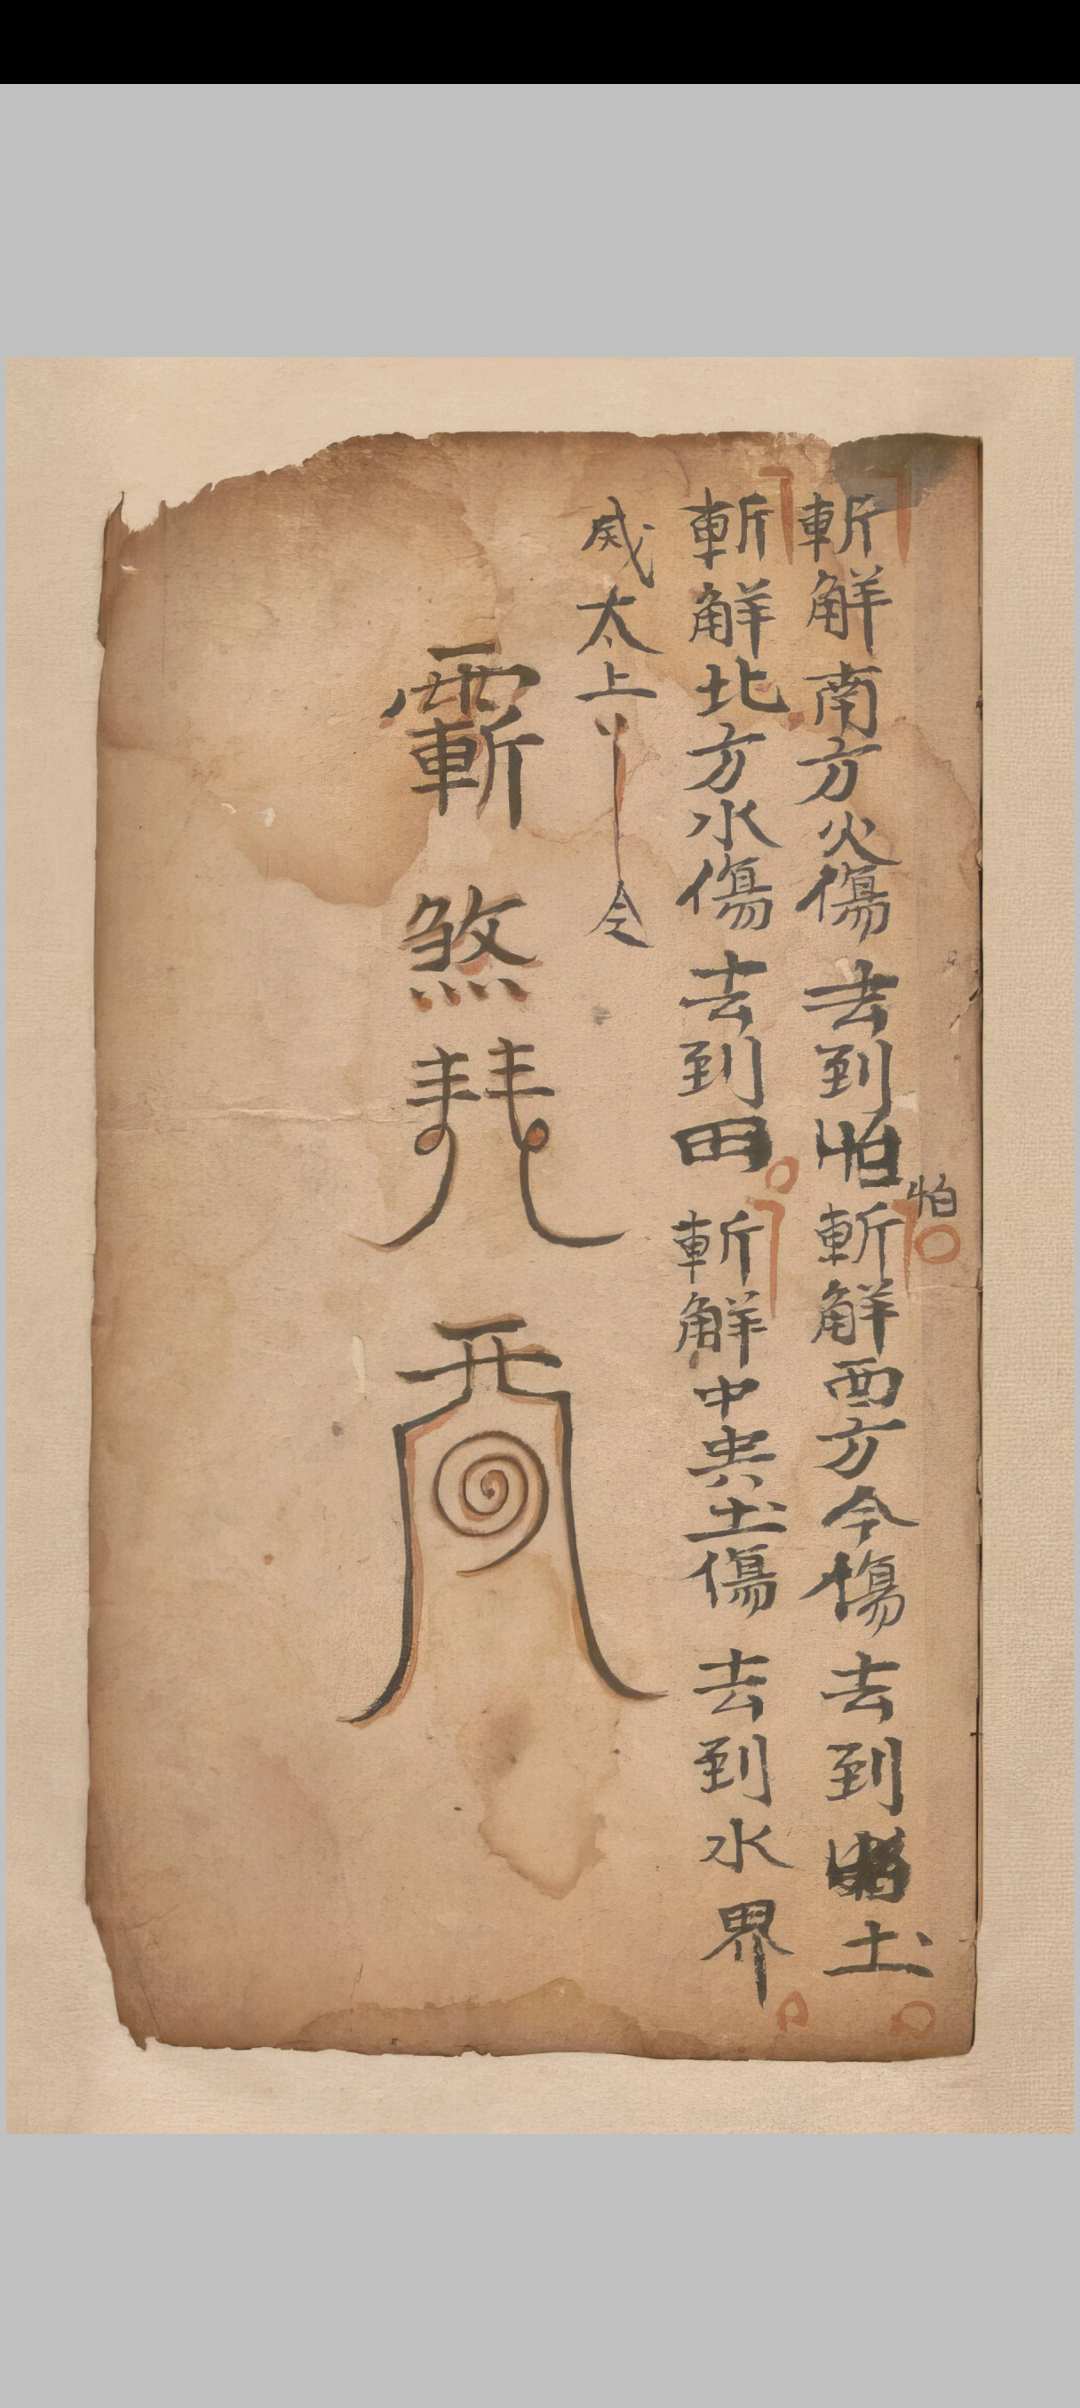 斬觧南方火傷去到怕斬觧西方令傷去到土
怕
斬觧北方水傷去到田斬觧中央土傷去到水界
威太上令
斬
煞